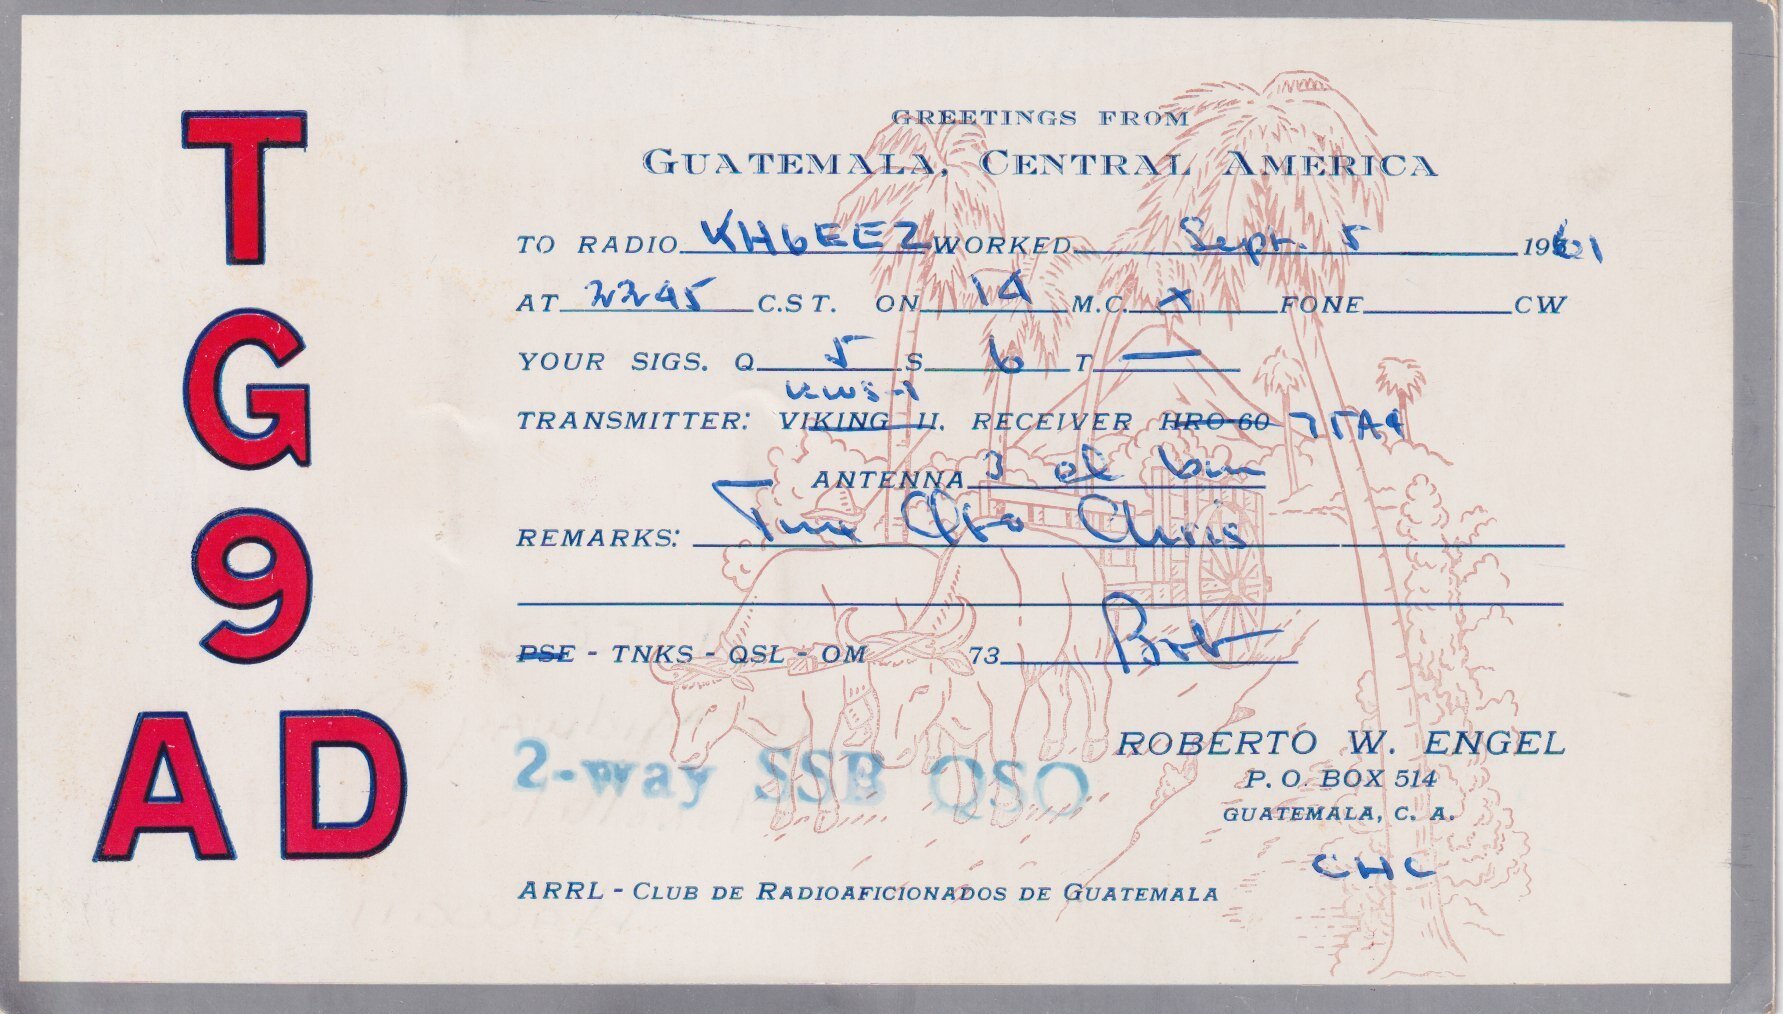 TG9AD
GREETINGS FROM
GUATEMALA, CENTRAL AMERICA
TO RADIO KH6EEZ WORKED Sept. 5 1961
AT 2245 C.S.T. ON 14 M.C. x FONE CW
YOUR SIGS. Q 5 S 6 T —
KWS-1
TRANSMITTER: VIKING II. RECEIVER HRO-60 75A4
ANTENNA 3 el bm
REMARKS: Tnx QSO Chris
PSE - TNKS - QSL - OM 73 Bob
2-way SSB QSO
ROBERTO W. ENGEL
P. O. BOX 514
GUATEMALA, C. A.
CHC
ARRL - CLUB DE RADIOAFICIONADOS DE GUATEMALA